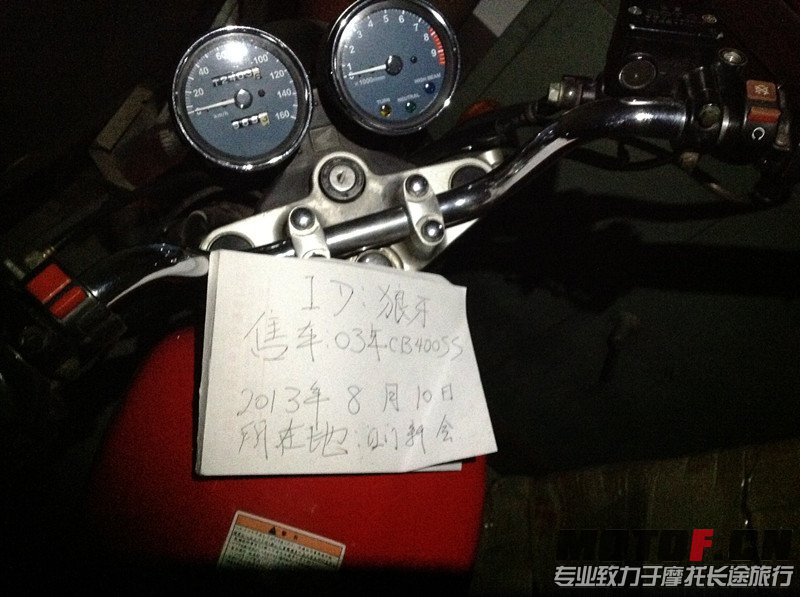 20
40
60
100
120
140
160
km/h
1
4
5
6
7
8
9
×1000r/min
TURN
NEUTRAL
HIGH BEAM
ID:狼牙
售车:03年CB400SS
2013年8月10日
所在地:江门新会
MOTOF.CN
专业致力于摩托长途旅行